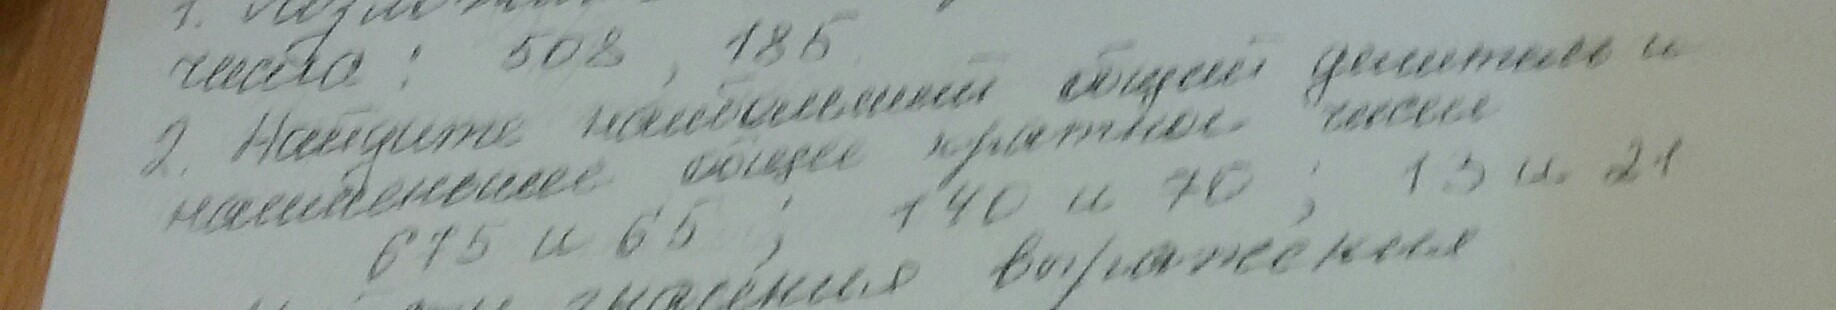 1. Разложите
числа: 508, 185
2. Найдите наибольший общий делитель и
наименьшее общее кратное чисел
675 и 65; 140 и 70; 13 и 21
значения выражения